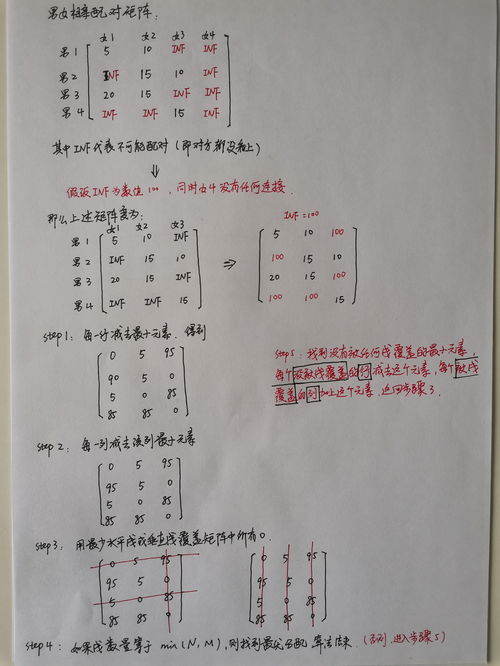 男女相亲配对矩阵:
女1 女2 女3 女4
男1 5 10 INF INF
男2 INF 15 10 INF
男3 20 15 INF INF
男4 INF INF 15 INF
其中INF代表不可能配对(即对方都没看上)
⇓
假设INF为数值100,同时女4没有任何连接.
那么上述矩阵变为:
女1 女2 女3
男1 5 10 INF
男2 INF 15 10
男3 20 15 INF
男4 INF INF 15
⇒
INF=100
5 10 100
100 15 10
20 15 100
100 100 15
step1: 每一行减去最小元素.得到
0 5 95
90 5 0
5 0 85
85 85 0
step5: 找到没有被任何线覆盖的最小元素,
每个没被线覆盖的行减去这个元素,每个被线
覆盖的列加上这个元素,返回步骤3.
step2: 每一列减去该列最小元素
0 5 95
95 5 0
5 0 85
85 85 0
step3: 用最少水平线或垂直线覆盖矩阵中所有0.
0 5 95
95 5 0
5 0 85
85 85 0
0 5 95
95 5 0
5 0 85
85 85 0
step4: 如果线数量等于 min(N, M),则找到最优匹配,算法结束.(否则,进入步骤5)